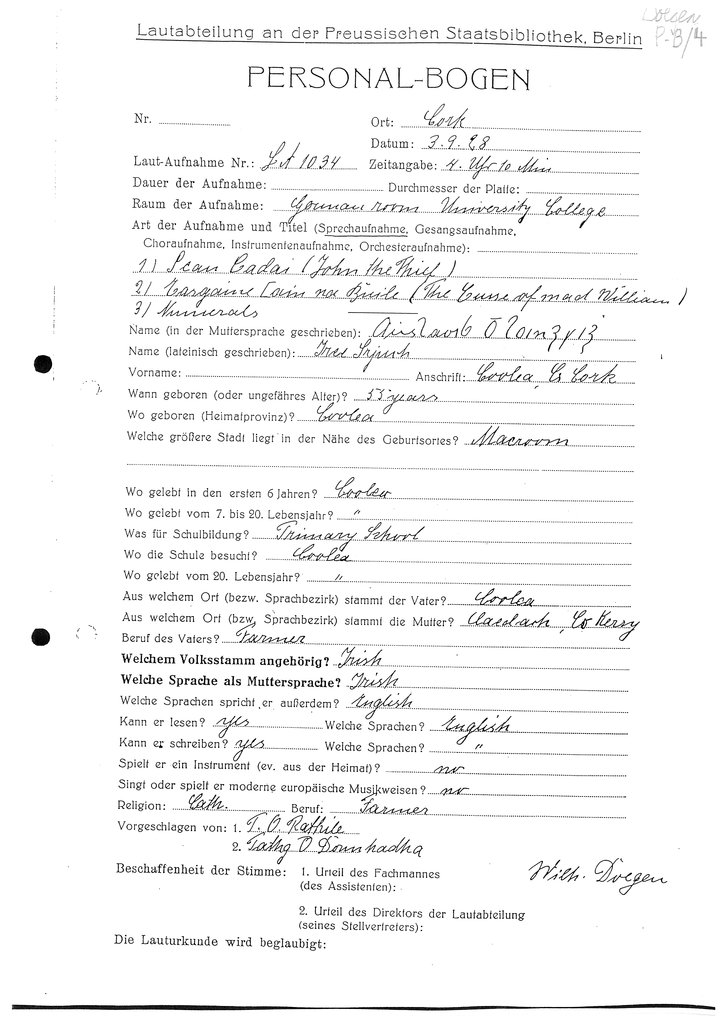 Doegen
P.B/4
Lautabteilung an der Preussischen Staatsbibliothek, Berlin
PERSONAL-BOGEN
Nr. Ort: Cork
Datum: 3.9.28
Laut-Aufnahme Nr.: LA 1034 Zeitangabe: 4. Uhr 10 Min
Dauer der Aufnahme: Durchmesser der Platte:
Raum der Aufnahme: room University College
Art der Aufnahme und Titel (Sprechaufnahme, Gesangsaufnahme,
Choraufnahme, Instrumentenaufnahme, Orchesteraufnahme):
1) Sean Gadai (John the Thief)
2) na Buile (The Curse of mad William)
3) Numerals
Name (in der Muttersprache geschrieben):
Name (lateinisch geschrieben):
Vorname: Anschrift: Coolea, Co Cork
Wann geboren (oder ungefähres Alter)? 55 years
Wo geboren (Heimatprovinz)? Coolea
Welche größere Stadt liegt in der Nähe des Geburtsortes? Macroom
Wo gelebt in den ersten 6 Jahren? Coolea
Wo gelebt vom 7. bis 20. Lebensjahr? "
Was für Schulbildung? Primary School
Wo die Schule besucht? Coolea
Wo gelebt vom 20. Lebensjahr? "
Aus welchem Ort (bezw. Sprachbezirk) stammt der Vater? Coolea
Aus welchem Ort (bzw. Sprachbezirk) stammt die Mutter? Co Kerry
Beruf des Vaters? Farmer
Welchem Volksstamm angehörig? Irish
Welche Sprache als Muttersprache? Irish
Welche Sprachen spricht er außerdem? English
Kann er lesen? yes Welche Sprachen? English
Kann er schreiben? yes Welche Sprachen? "
Spielt er ein Instrument (ev. aus der Heimat)? no
Singt oder spielt er moderne europäische Musikweisen? no
Religion: Cath. Beruf: Farmer
Vorgeschlagen von: 1. T. O Rathile
2. Tathg O Donnhadha
Beschaffenheit der Stimme: 1. Urteil des Fachmannes
(des Assistenten):
Wilh. Doegen
2. Urteil des Direktors der Lautabteilung
(seines Stellvertreters):
Die Lauturkunde wird beglaubigt: